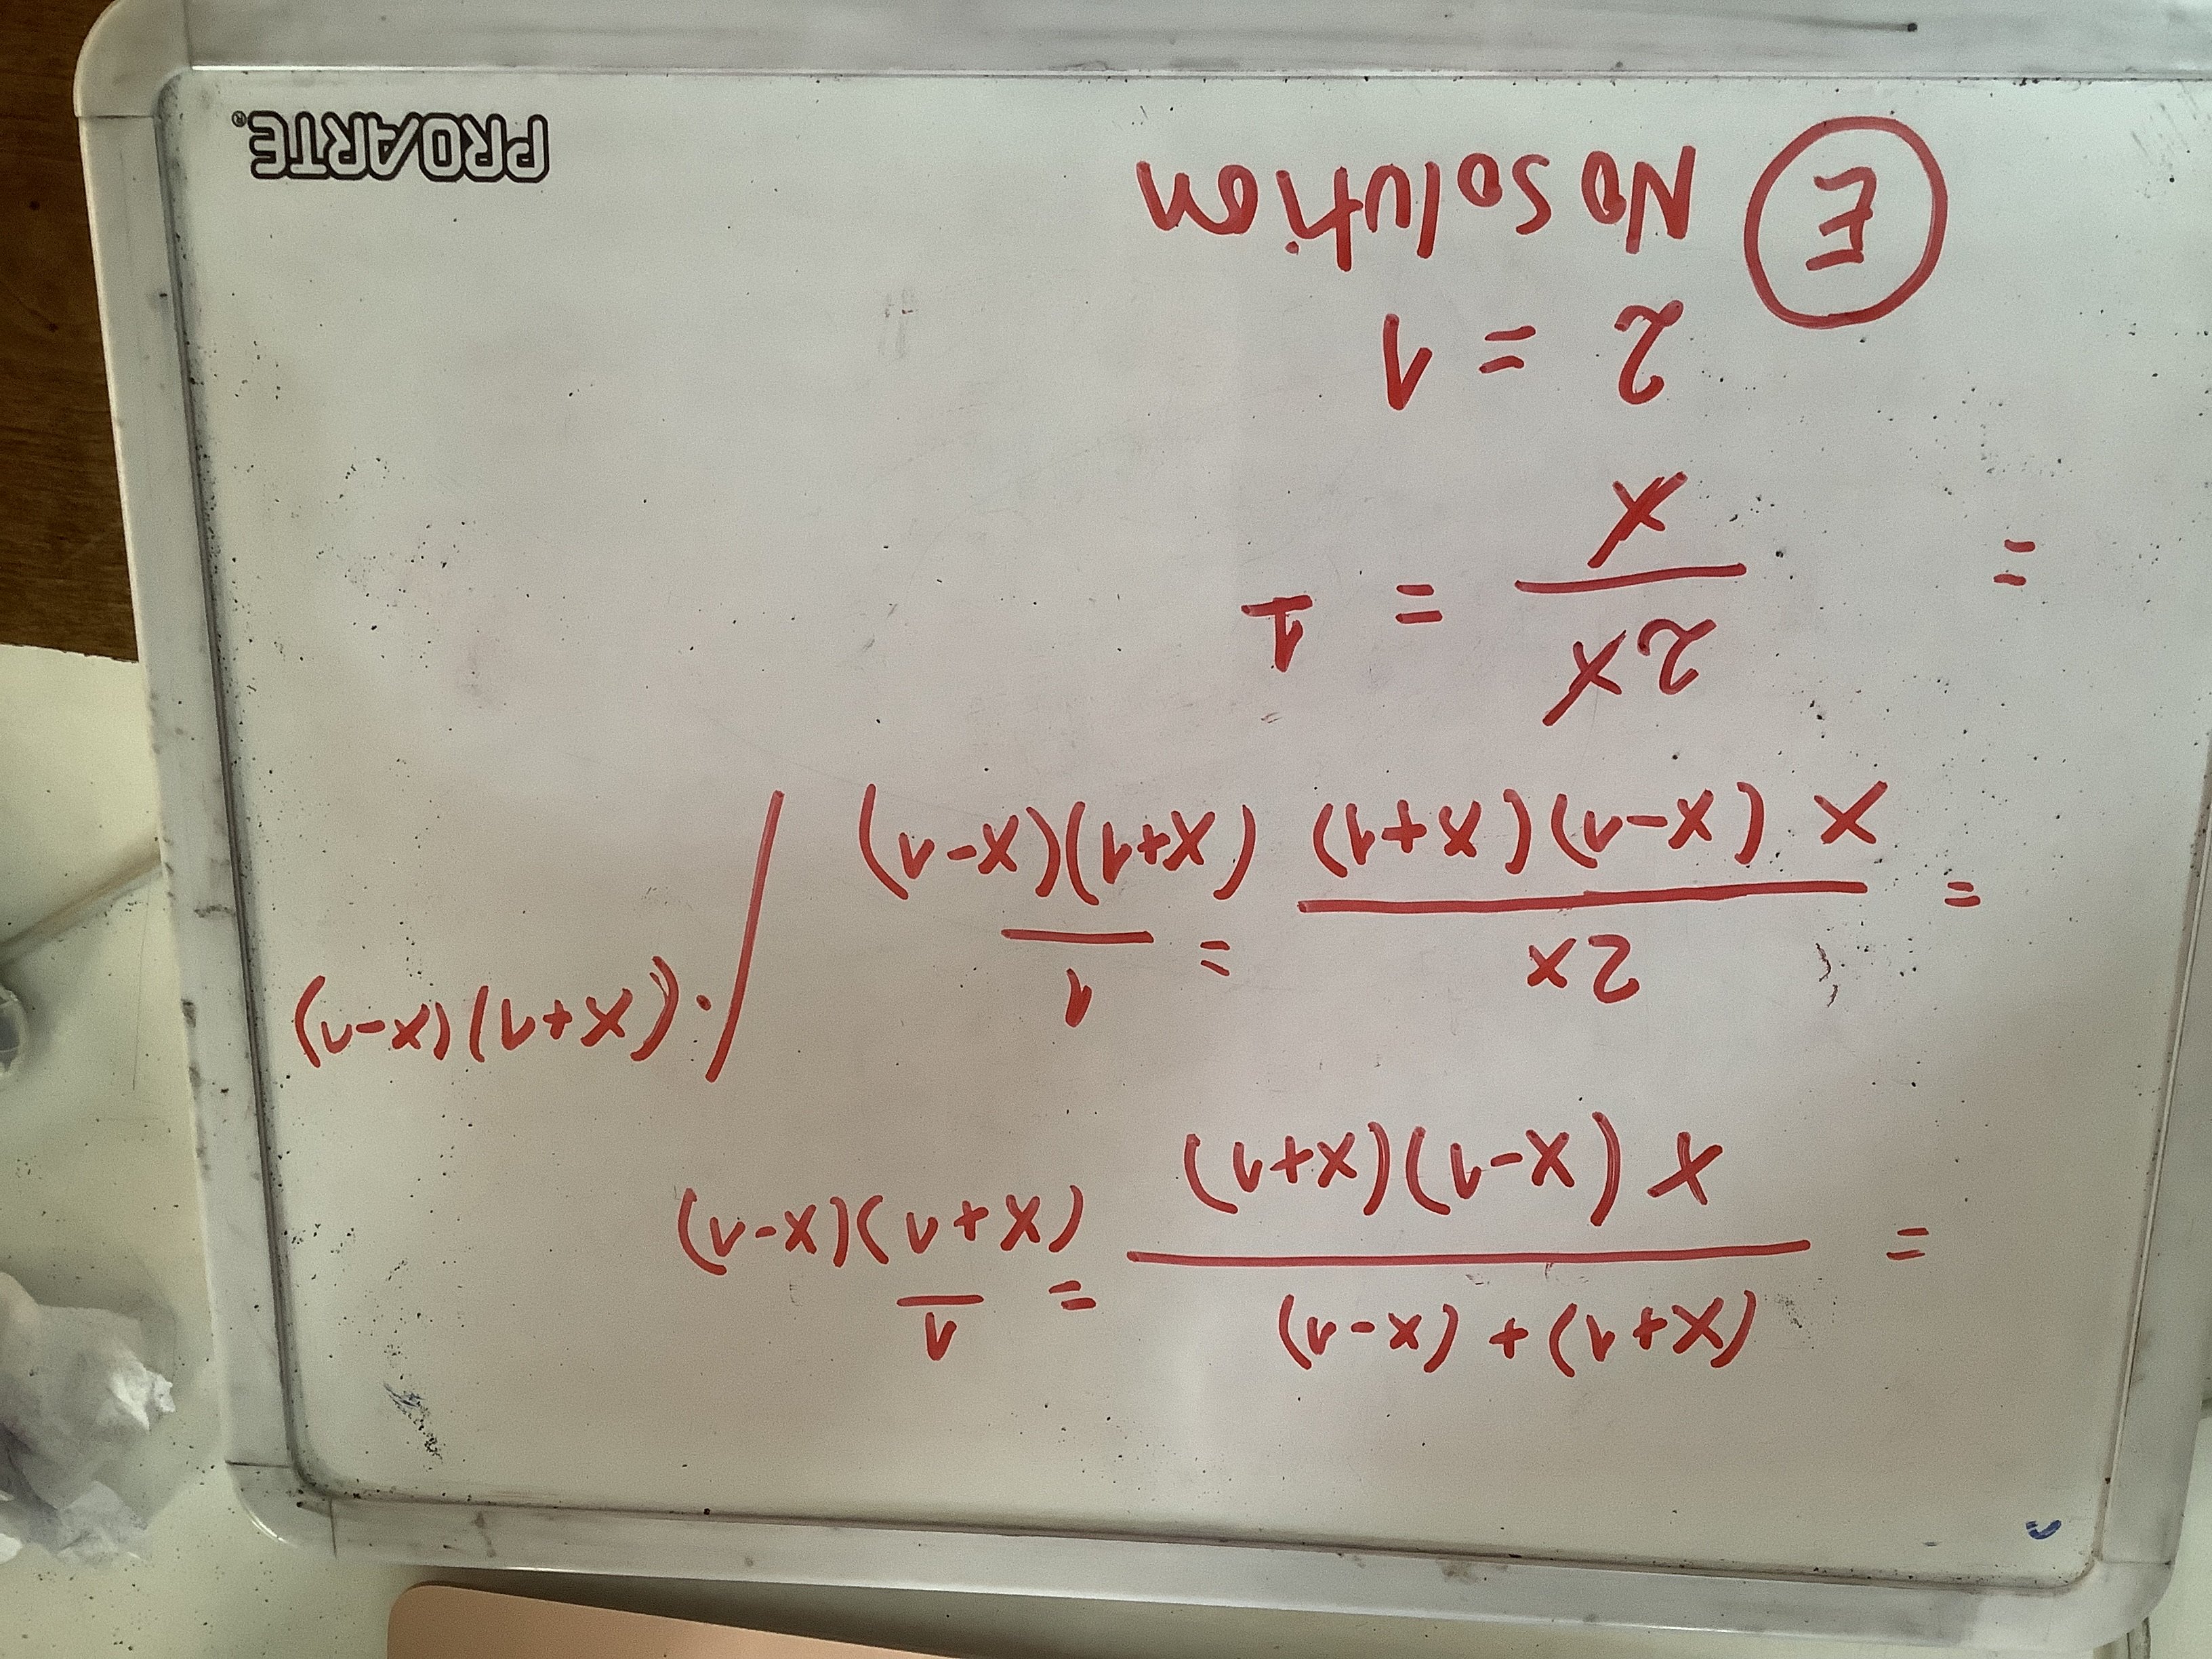 = ((x+1)+(x-1))/(x(x-1)(x+1)) = 1/((x+1)(x-1))
= 2x/(x(x-1)(x+1)) = 1/((x+1)(x-1)) / ·(x+1)(x-1)
= 2x/x = 1
2 = 1
E No solution
PRO/ARTE®